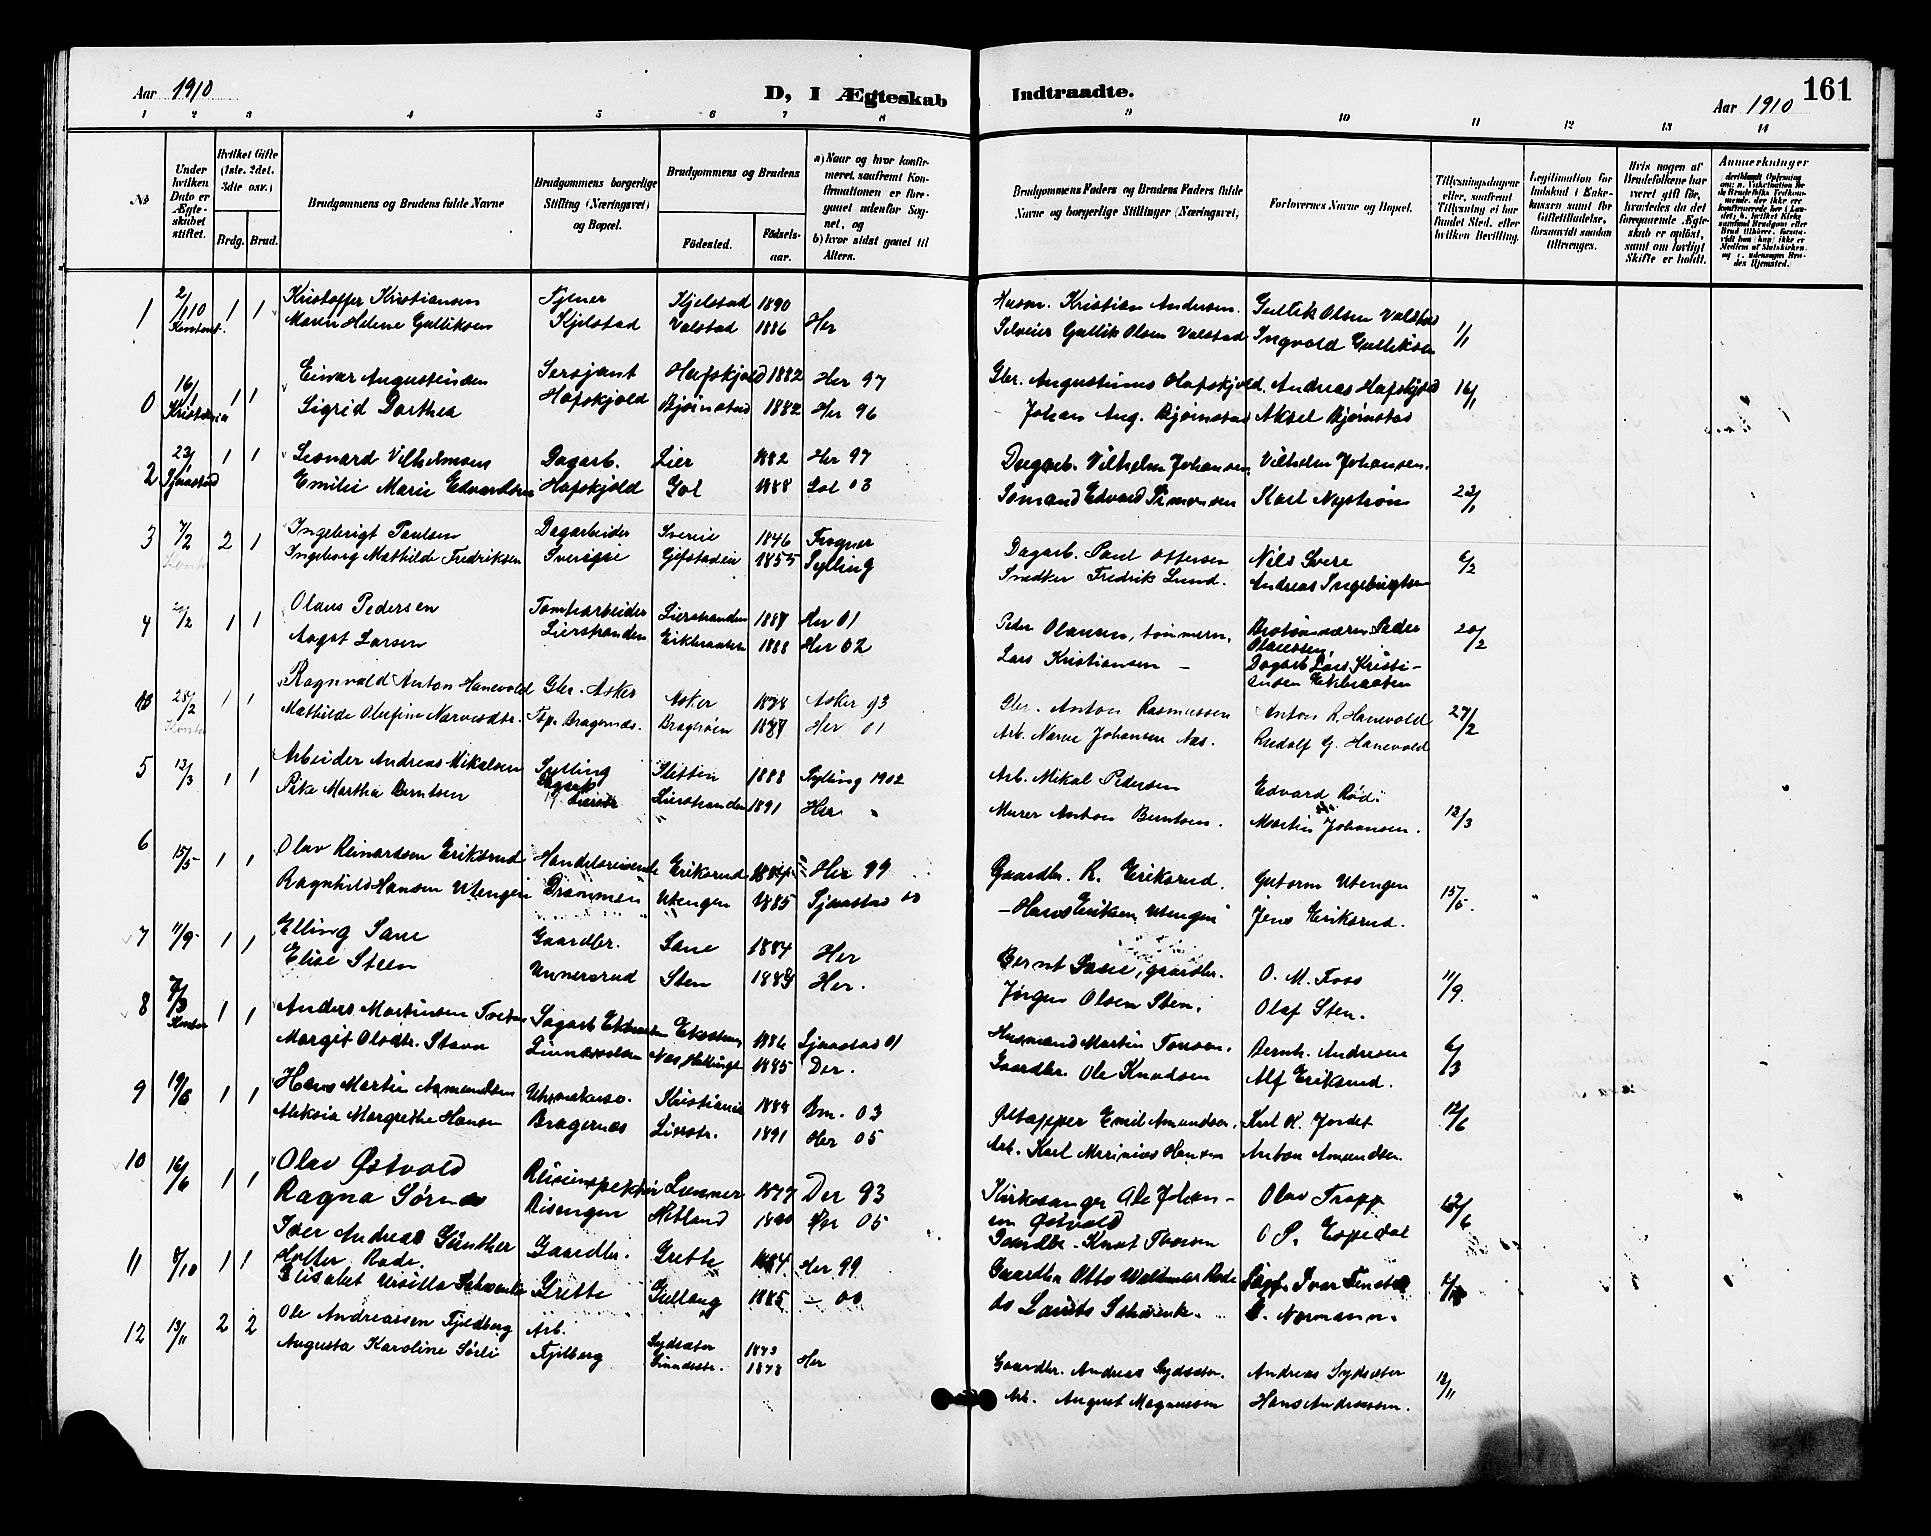 Aar 1910
D, I Ægteskab
Indtraadte.
Aar 1910
161
1 2 3 4 5 6 7 8 9 10 11 12 13 14
No
Under hvilken Dato er Ægteskabet stiftet.
Hvilket Gifte (1ste, 2det, 3die osv.)
Brdg. Brud.
Brudgommens og Brudens fulde Navne
Brudgommens borgerlige Stilling (Næringsvei) og Bopæl.
Brudgommens og Brudens
Fødested.
Fødselsaar.
a) Naar og hvor konfirmeret, saafremt Konfirmationen er foregaaet udenfor Sognet, og
b) hvor sidst gaaet til Alters.
Brudgommens Faders og Brudens Faders fulde Navne og borgerlige Stillinger (Næringsvei)
Forlovernes Navne og Bopæl.
Tillysningsdagene eller, saafremt Tillysning ei har fundet Sted, efter hvilken Bevilling.
Legitimation for Indskud i Enkekassen samt for Giftetilladelse, forsaavidt saadan tiltrænges.
Hvis nogen af Brudefolkene har været gift før, hvorledes da det foregaaende Ægteskab er opløst, samt om lovligt Skifte er holdt.
Anmerkninger
1 2/1 10 1 1 Kristoffer Kristiansen Tjener Kjelstad 1890 Husm. Kristian Andersen. Gullik Olsen Valstad
Maren Helene Gulliksen Kjelstad Valstad 1886 Her Selveier Gullik Olsen Valstad Ingvald Gulliksen 1/1
0 16/1 Kristiania 1 1 Einar Augustinsen Sersjant Hafskjold 1882 Her 97 Gbr. Augustinus Hafskjold. Andreas Hafskjold 16/1
Sigrid Dorthea Hafskjold Bjørnstad 1882 Her 96 Johan Aug. Bjørnstad Aksel Bjørnstad
2 23/1 Sjaastad 1 1 Leonard Vilhelmsen Dagarb. Lier 1882 Her 97 Dagarb. Vilhelm Johansen Vilhelm Johansen.
Emilie Marie Edvardsen Hafskjold Gol 1888 Gol 03 Sømand Edvard Simonsen Karl Nystrøm 23/1
3 7/2 2 1 Ingebrigt Paulsen Dagarbeider Sverie 1846 Frogner Dagarb. Paul Ottersen Nils Svere 6/2
Ingeborg Mathilde Fredriksen Sverigsie Gifstadein 1855 Sylling Snedker Fredrik Lund. Andreas Ingebrigtsen
4 2/2 1 1 Olaus Pedersen Tomtearbeider Lierstranden 1887 Her 01 Peder Olausen, tømmerm. Peder Olaussen 20/2
Aagot Larsen Lierstranden Eikbraaten 1888 Her 02 Lars Kristiansen – Dagarb Lars Kristiansen Eikbraaten
28/2 1 1 Ragnvald Anton Hanevold Gbr. Asker Asker 1878 Asker 93 Gbr. Anton Rasmussen Anton R. Hanevold 27/2
Mathilde Olefine Narvesdtr. Tsp. Bragernæs. Bragerøen 1887 Her 01 Arb. Narve Johansen Næs. Rudolf G. Hanevold
5 13/3 1 1 Arbeider Andreas Mikalsen Sylling Sletten 1888 Sylling 1902 Arb. Mikal Pedersen Edvard Rød.
Pike Martha Berntsen Lierstranden 1891 Her Murer Anton Berntsen. Martin Johansen. 12/3
6 15/5 1 1 Olav Reinardsen Eriksrud Handelsreisende Eriksrud 1884 Her 99 Gaardbr. R. Eriksrud. Gutorm Utengen 15/5
Ragnhild Hansen Utengen Drammen Utengen 1885 Sjaastad 00 – Hans Eriksen Utengen Jens Eriksrud.
7 11/9 1 1 Elling Sane Gaardbr. Sane 1884 Her Bernt Sane, gaardbr. O. M. Foss
Elise Steen Unnersrud Sten 1884 Her. Jørgen Olsen Sten. Olaf Sten. 11/9
8 1 1 Anders Martinsen 1886 Sjaastad 01 Husmand Martin Bernh. Andresen 6/3
Margit Olsdtr. Stavn 1885 Do. Gaardbr. Ole Knudsen Alf Eriksrud.
9 19/6 1 1 Hans Martin Amundsen Kristiania 1888 Brn. 03 Øltapper Emil Amundsen. Karl K. Jordet 12/6
Aleksia Margrethe Hansen Bragernæs Lierstr. 1891 Her 05 Arb. Karl Marinius Hansen Anton Amundsen.
10 16/6 1 1 Olav Østvold Reiseinspektør Lunner 1877 Der 93 Kirkesanger Ole Johansen Østvold Olav Tropp 12/6
Ragna Sørnes Risengen Hetland 05 Gaardbr. Knut Thorsen O P. Espedal
11 8/10 1 1 Iver Andreas Günther Holter Rode. Gaardbr. Grette 1884 Her 99 Gaardbr Otto Waldemar Rode
Elisabet Ursilla Schwenke Grette Gullaug 1885 – 00 do Laurits Schwenke. Normann.
12 13/11 2 2 Ole Andreassen Fjeldberg Arb. Sydsæter 1843 Gaardbr. Andreas Sydsæter. Andreas Sydsæter 12/11
Augusta Karoline Sørli Fjelberg 1848 Her Arb. August Magnussen Hans Andreassen.